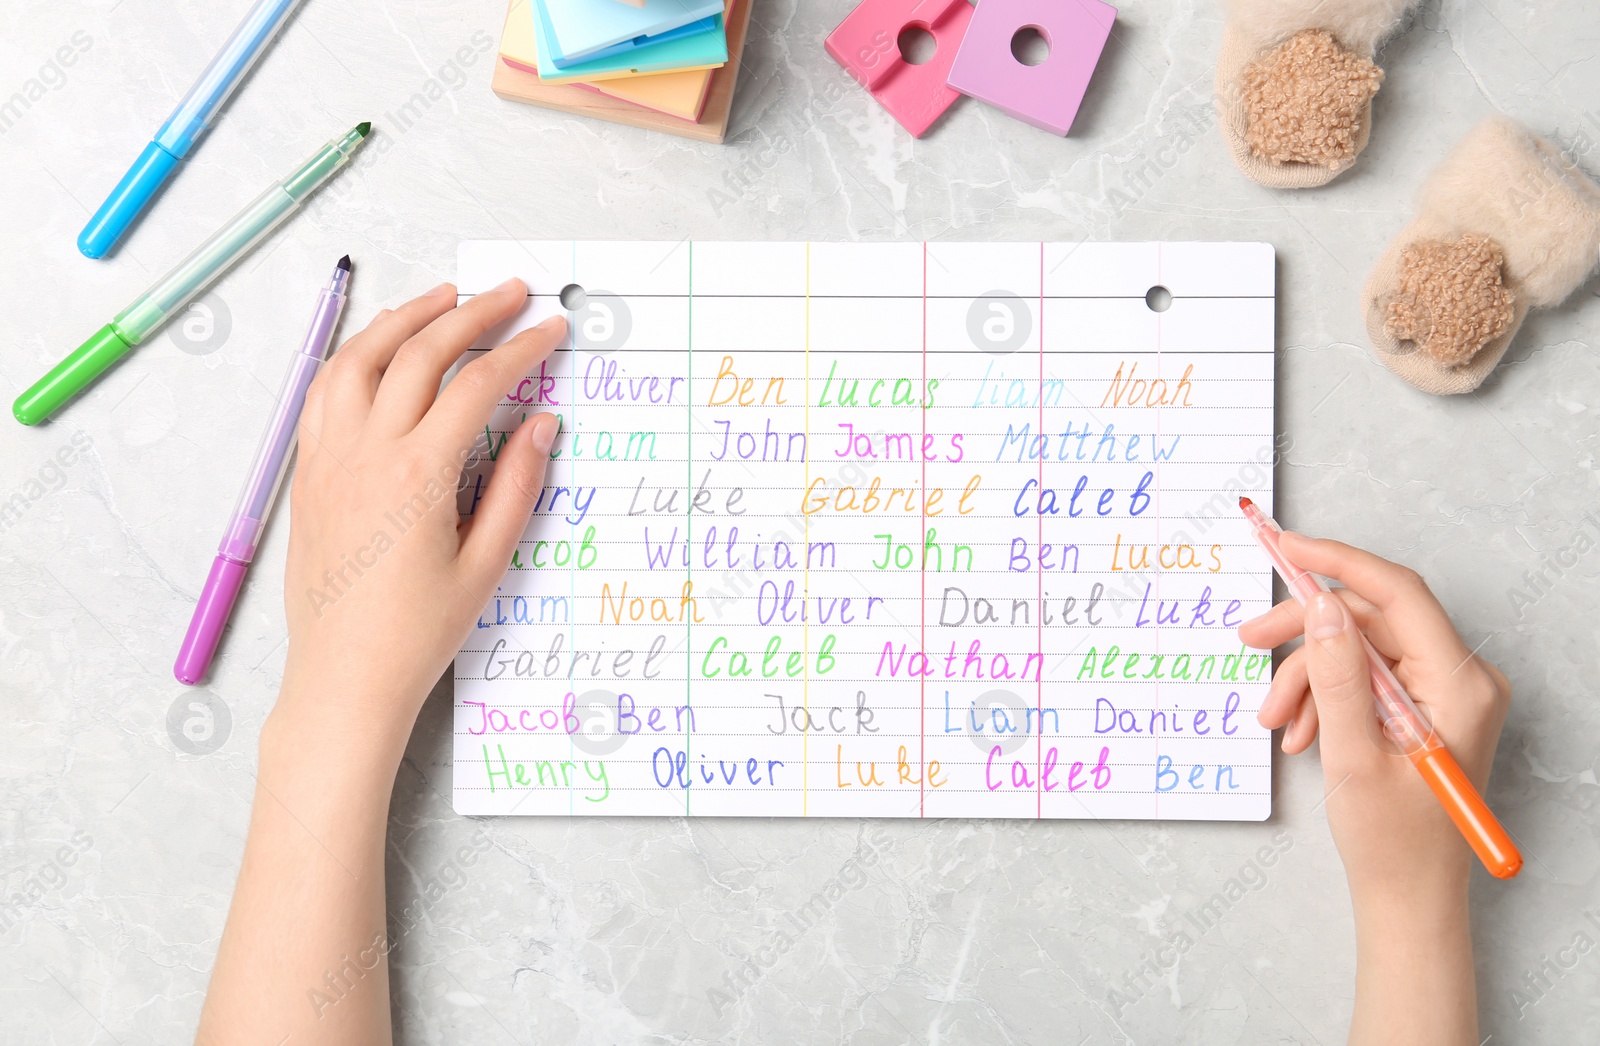 Jack Oliver Ben Lucas Liam Noah
William John James Matthew
Henry Luke Gabriel Caleb
Jacob William John Ben Lucas
Liam Noah Oliver Daniel Luke
Gabriel Caleb Nathan Alexander
Jacob Ben Jack Liam Daniel
Henry Oliver Luke Caleb Ben
Africa Images